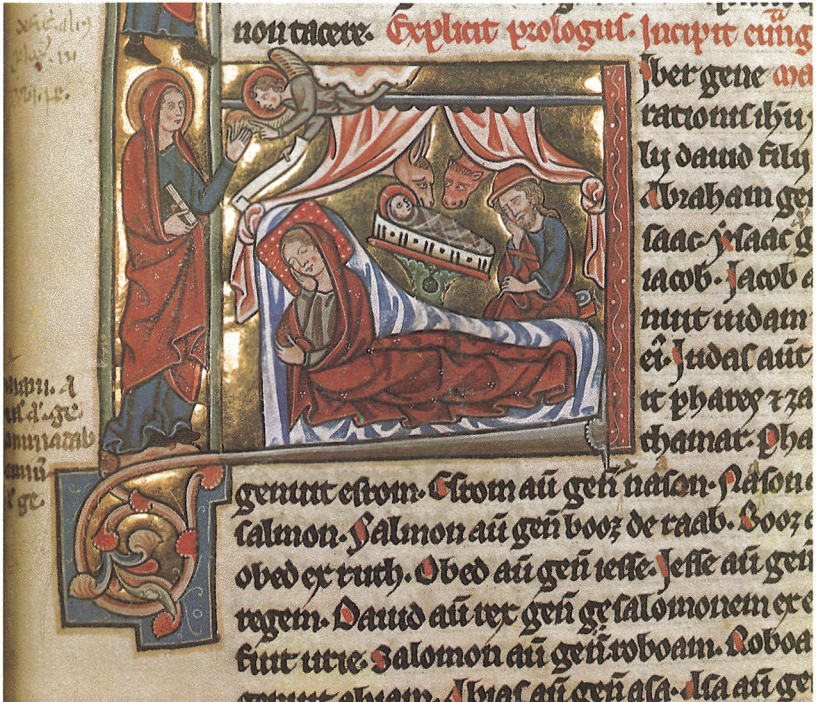 non tacere. Explicit prologus. Incipit euũg
iber gene
rationis ihũ
lij dauid filij
Abraham gen
saac. ysaac g
iacob. Jacob a
nuit iudam
ei. Judas aũt
it phares ⁊ za
thamar. Pha
genuit esrom. Esrom aũ geñ nason. Nason
salmon. Salmon aũ geñ booz de raab. Booz
obed ex ruth. Obed aũ geñ iesse. Jesse aũ geñ
regem. Dauid aũ rex geñ gesalomonem ex e
fuit urie. Salomon aũ geñ roboam. Roboa
genuit abiam. Abias aũ geñ asa. Asa aũ ge